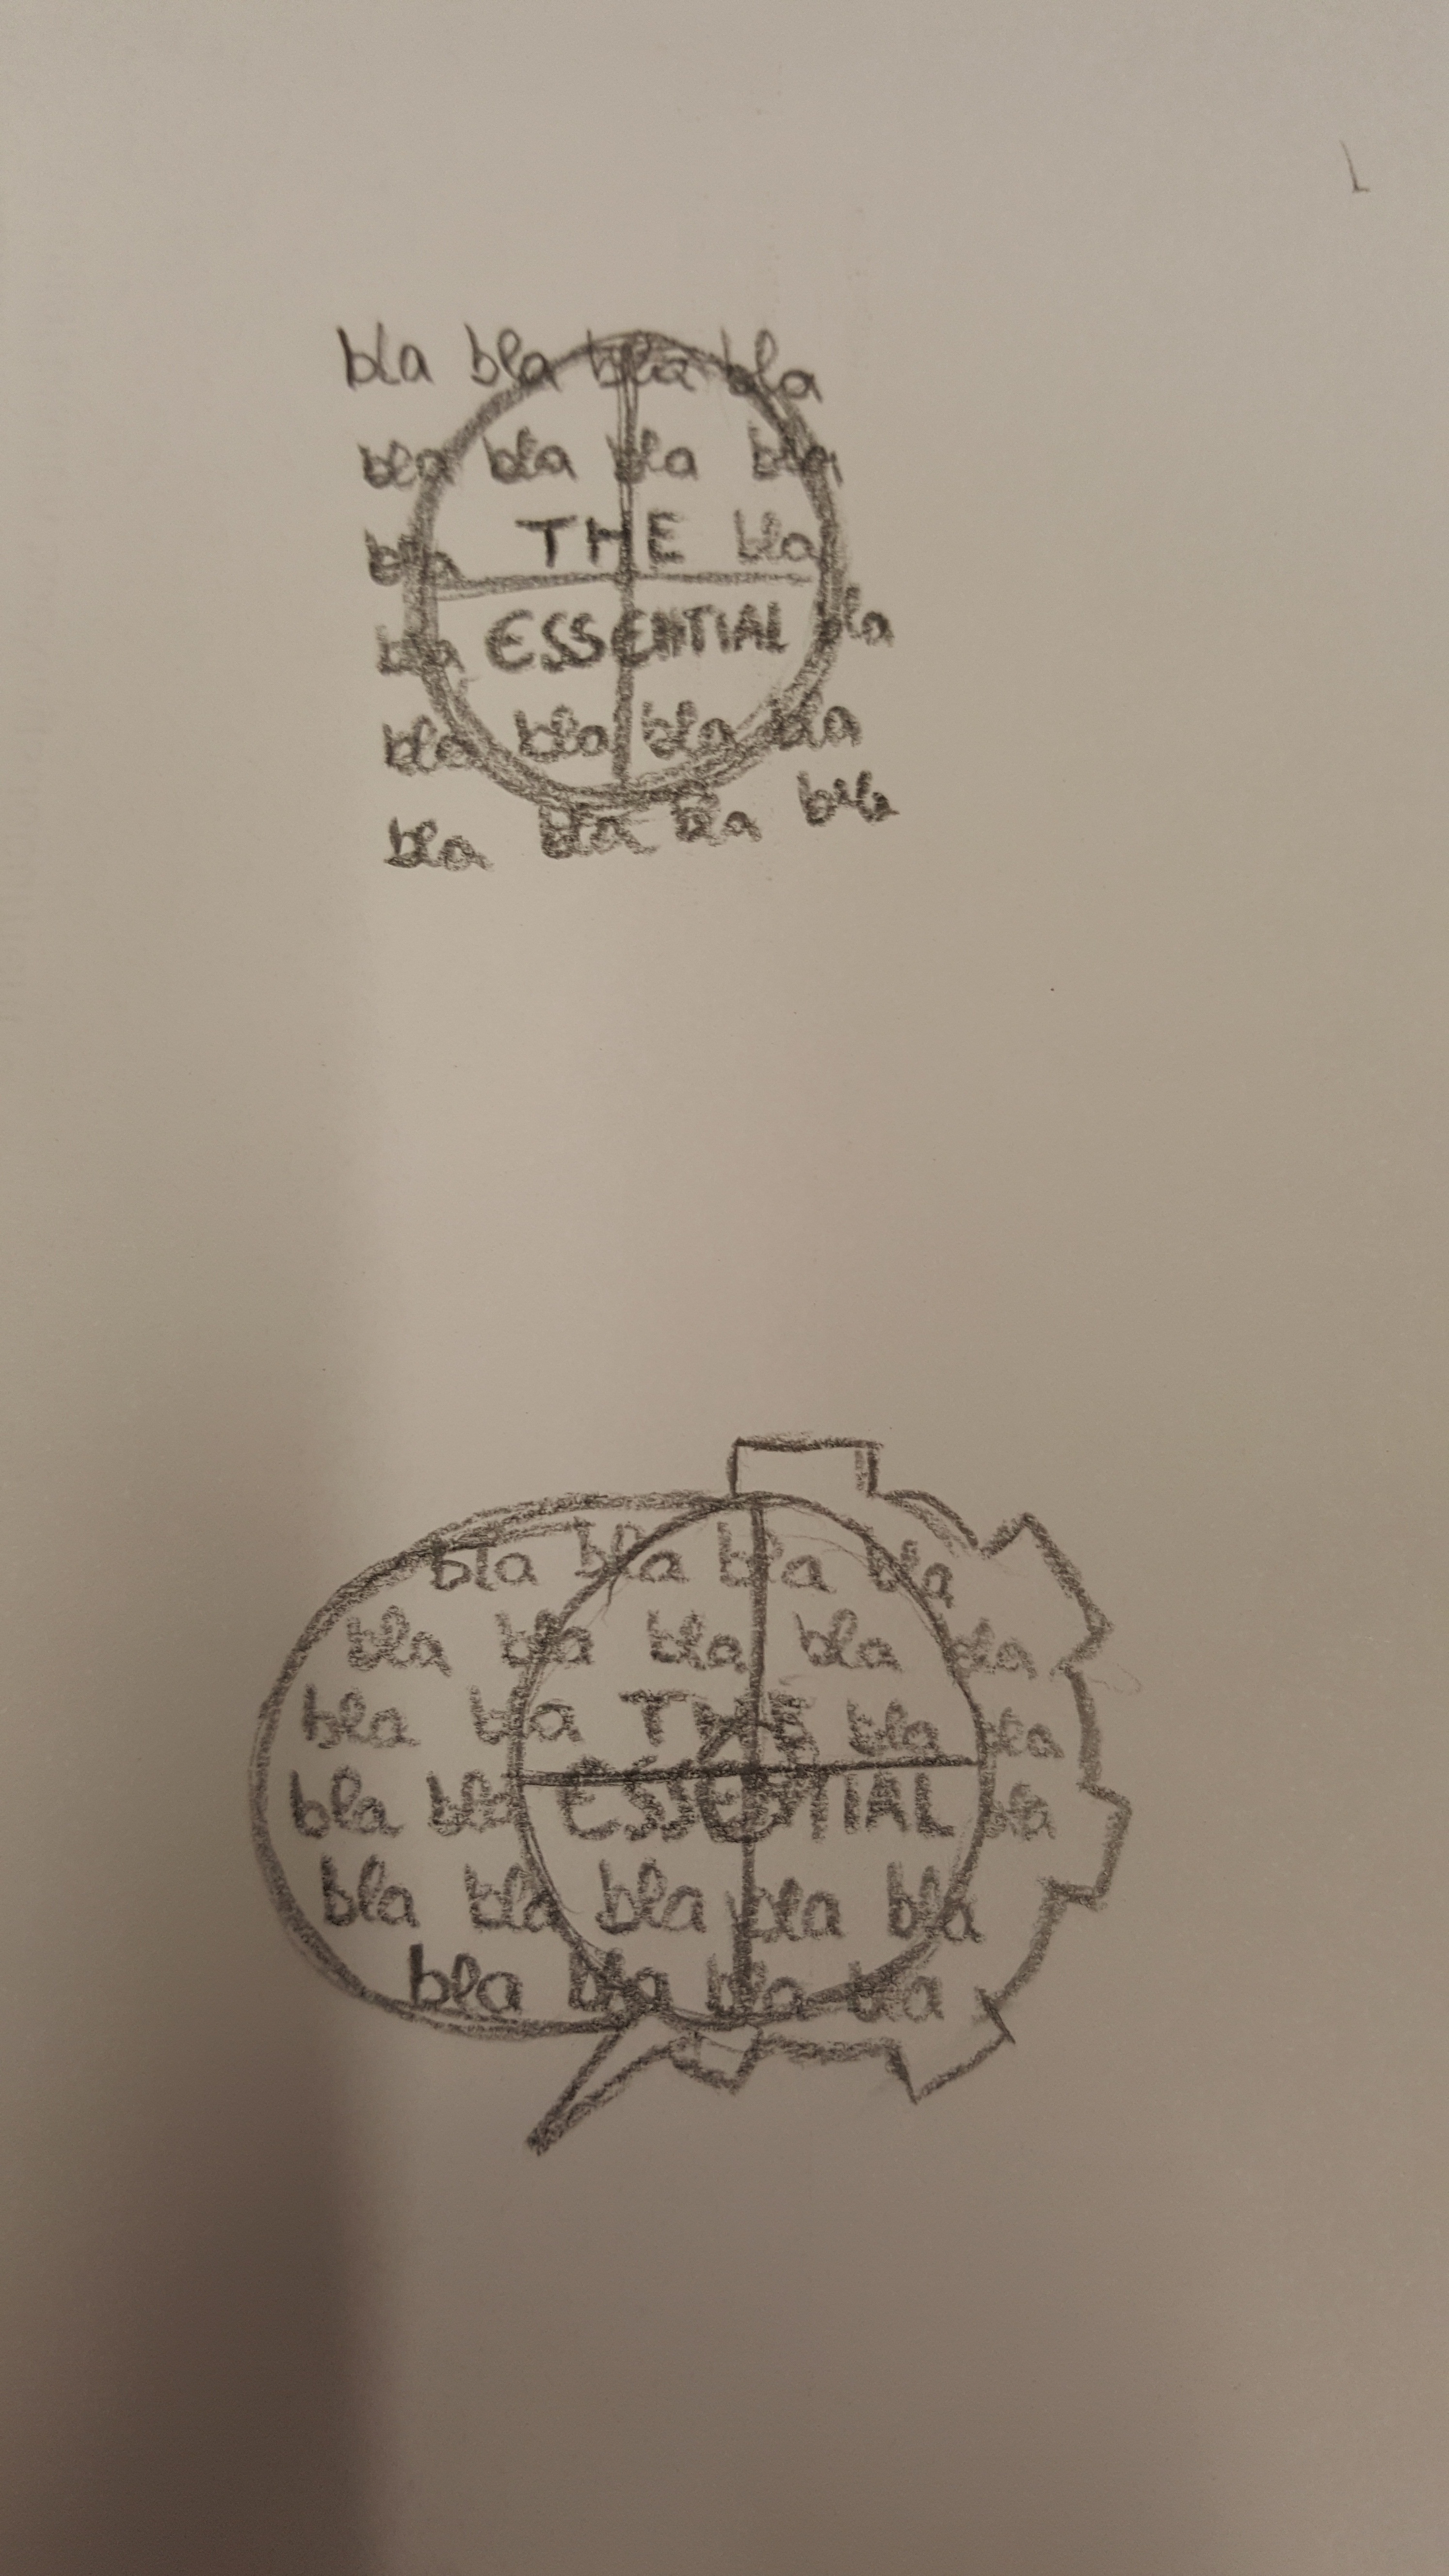 bla bla bla bla
bla bla bla bla
bla THE bla
bla ESSENTIAL bla
bla bla bla bla
bla bla bla bla
bla bla bla bla
bla bla bla bla bla
bla bla THE bla bla
bla bla ESSENTIAL bla
bla bla bla bla bla
bla bla bla bla